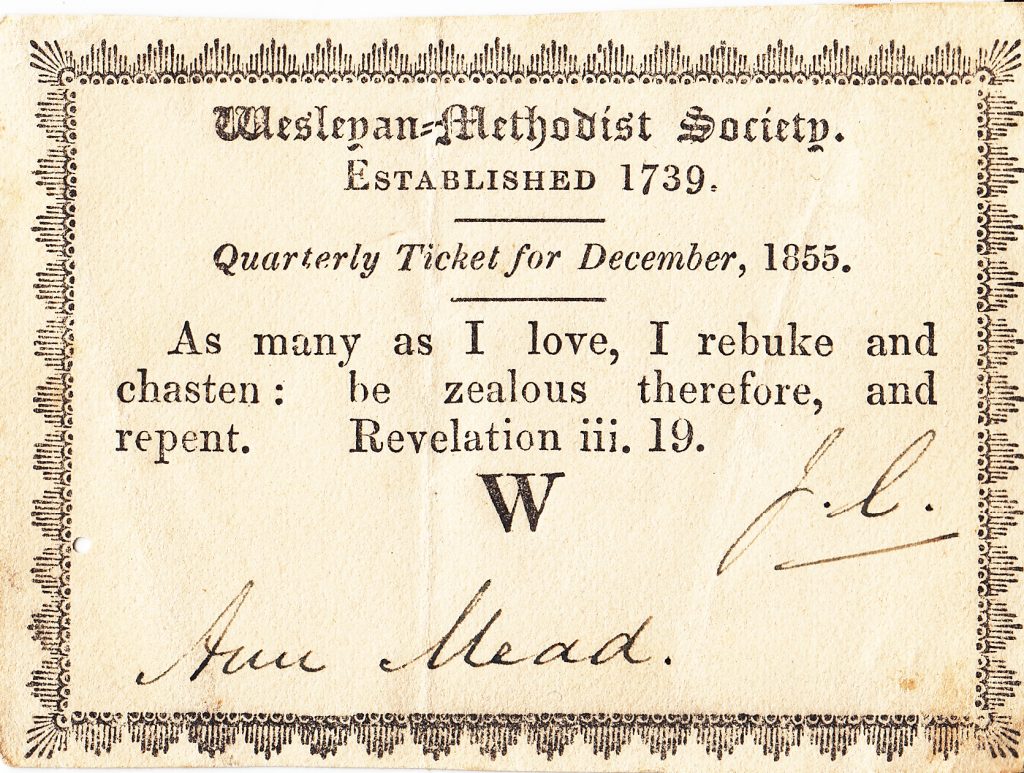 Wesleyan-Methodist Society.
ESTABLISHED 1739.
Quarterly Ticket for December, 1855.
As many as I love, I rebuke and
chasten: be zealous therefore, and
repent. Revelation iii. 19.
W
J. C.
Ann Mead.